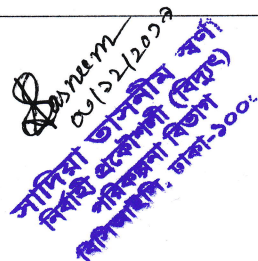 Tasneem
০৩/১২/২০১৭
সাদিয়া তাসনীম স্বর্ণা
নির্বাহী প্রকৌশলী (বিদ্যুৎ)
পরিকল্পনা বিভাগ
ঢাকা-১০০০